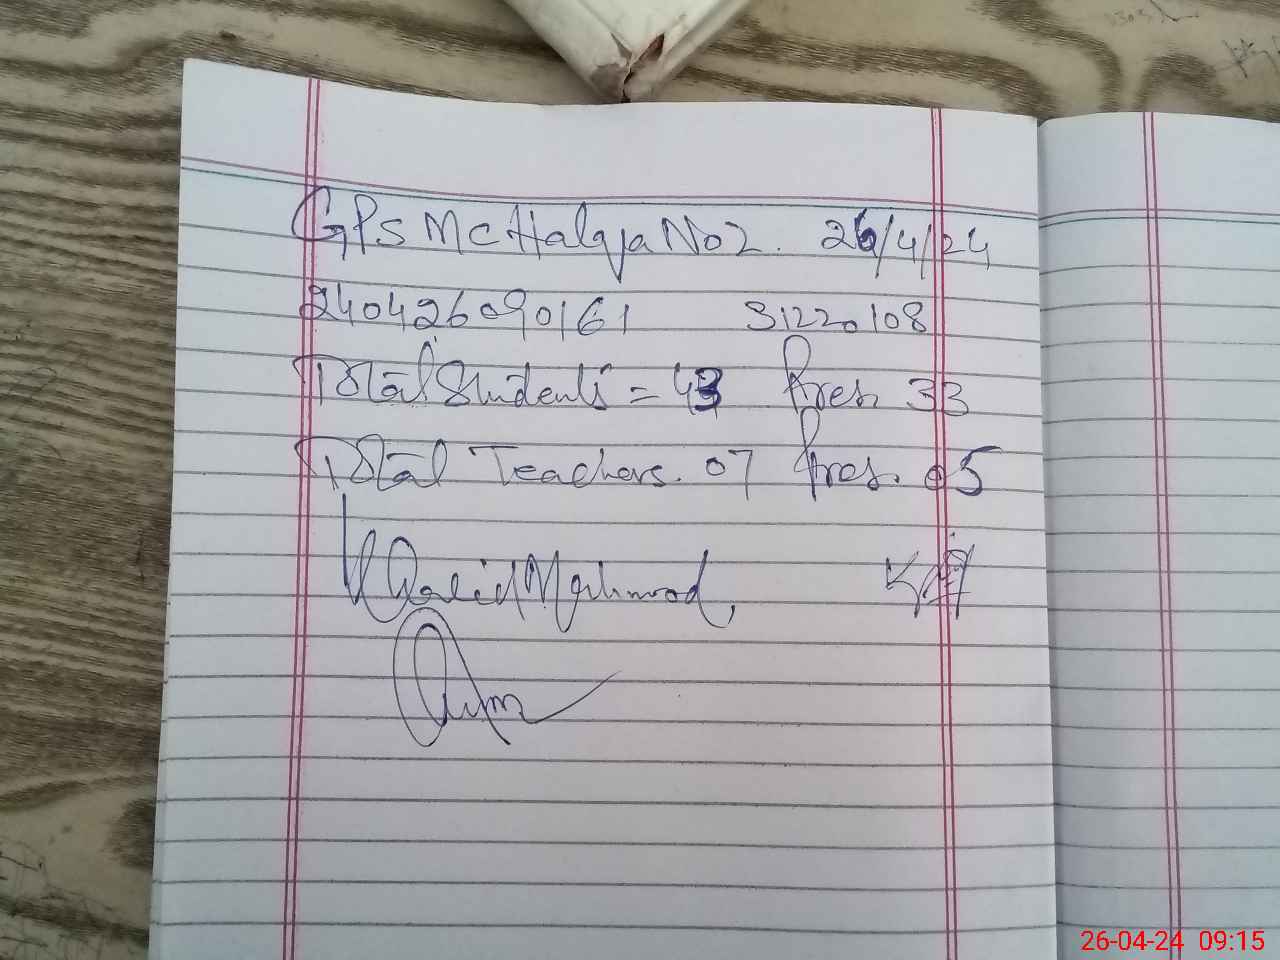 GPS MC Halqa No 2. 26/4/24
240426090161 31220108
Total Students = 43 Pres. 33
Total Teachers. 07 Pres. 05
Khalid Mahmood,
26-04-24 09:15